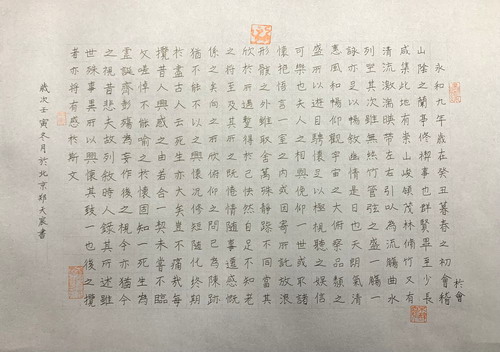 永和九年歲在癸丑暮春之初會稽
於會
山陰之蘭亭修禊事也群賢畢至少長
咸集此地有崇山峻領茂林脩竹又有
清流激湍映帶左右引以為流觴曲水
列坐其次雖無絲竹管弦之盛一觴一
詠亦足以暢敘幽情是日也天朗氣清
惠風和暢仰觀宇宙之大俯察品類之
盛所以遊目騁懷足以極視聽之娛信
可樂也夫人之相與俛仰一世或取諸
懷抱悟言一室之內或因寄所託放浪
形骸之外雖取舍萬殊靜躁不同當其
欣於所遇暫得於己怏然自足不知老
之將至及其所之既惓情隨事遷感慨
係之矣向之所欣俛仰之間已為陳跡
猶不能不以之興懷況脩短隨化終期
於盡古人云死生亦大矣豈不痛哉每
攬昔人興感之由若合一契未嘗不臨
文嗟悼不能喻之於懷固知一死生為
虛誕齊彭殤為妄作後之視今亦猶今
之視昔悲夫故列敘時人錄其所述雖
世殊事異所以興懷其致一也後之攬
者亦將有感於斯文
歲次壬寅冬月於北京郑書